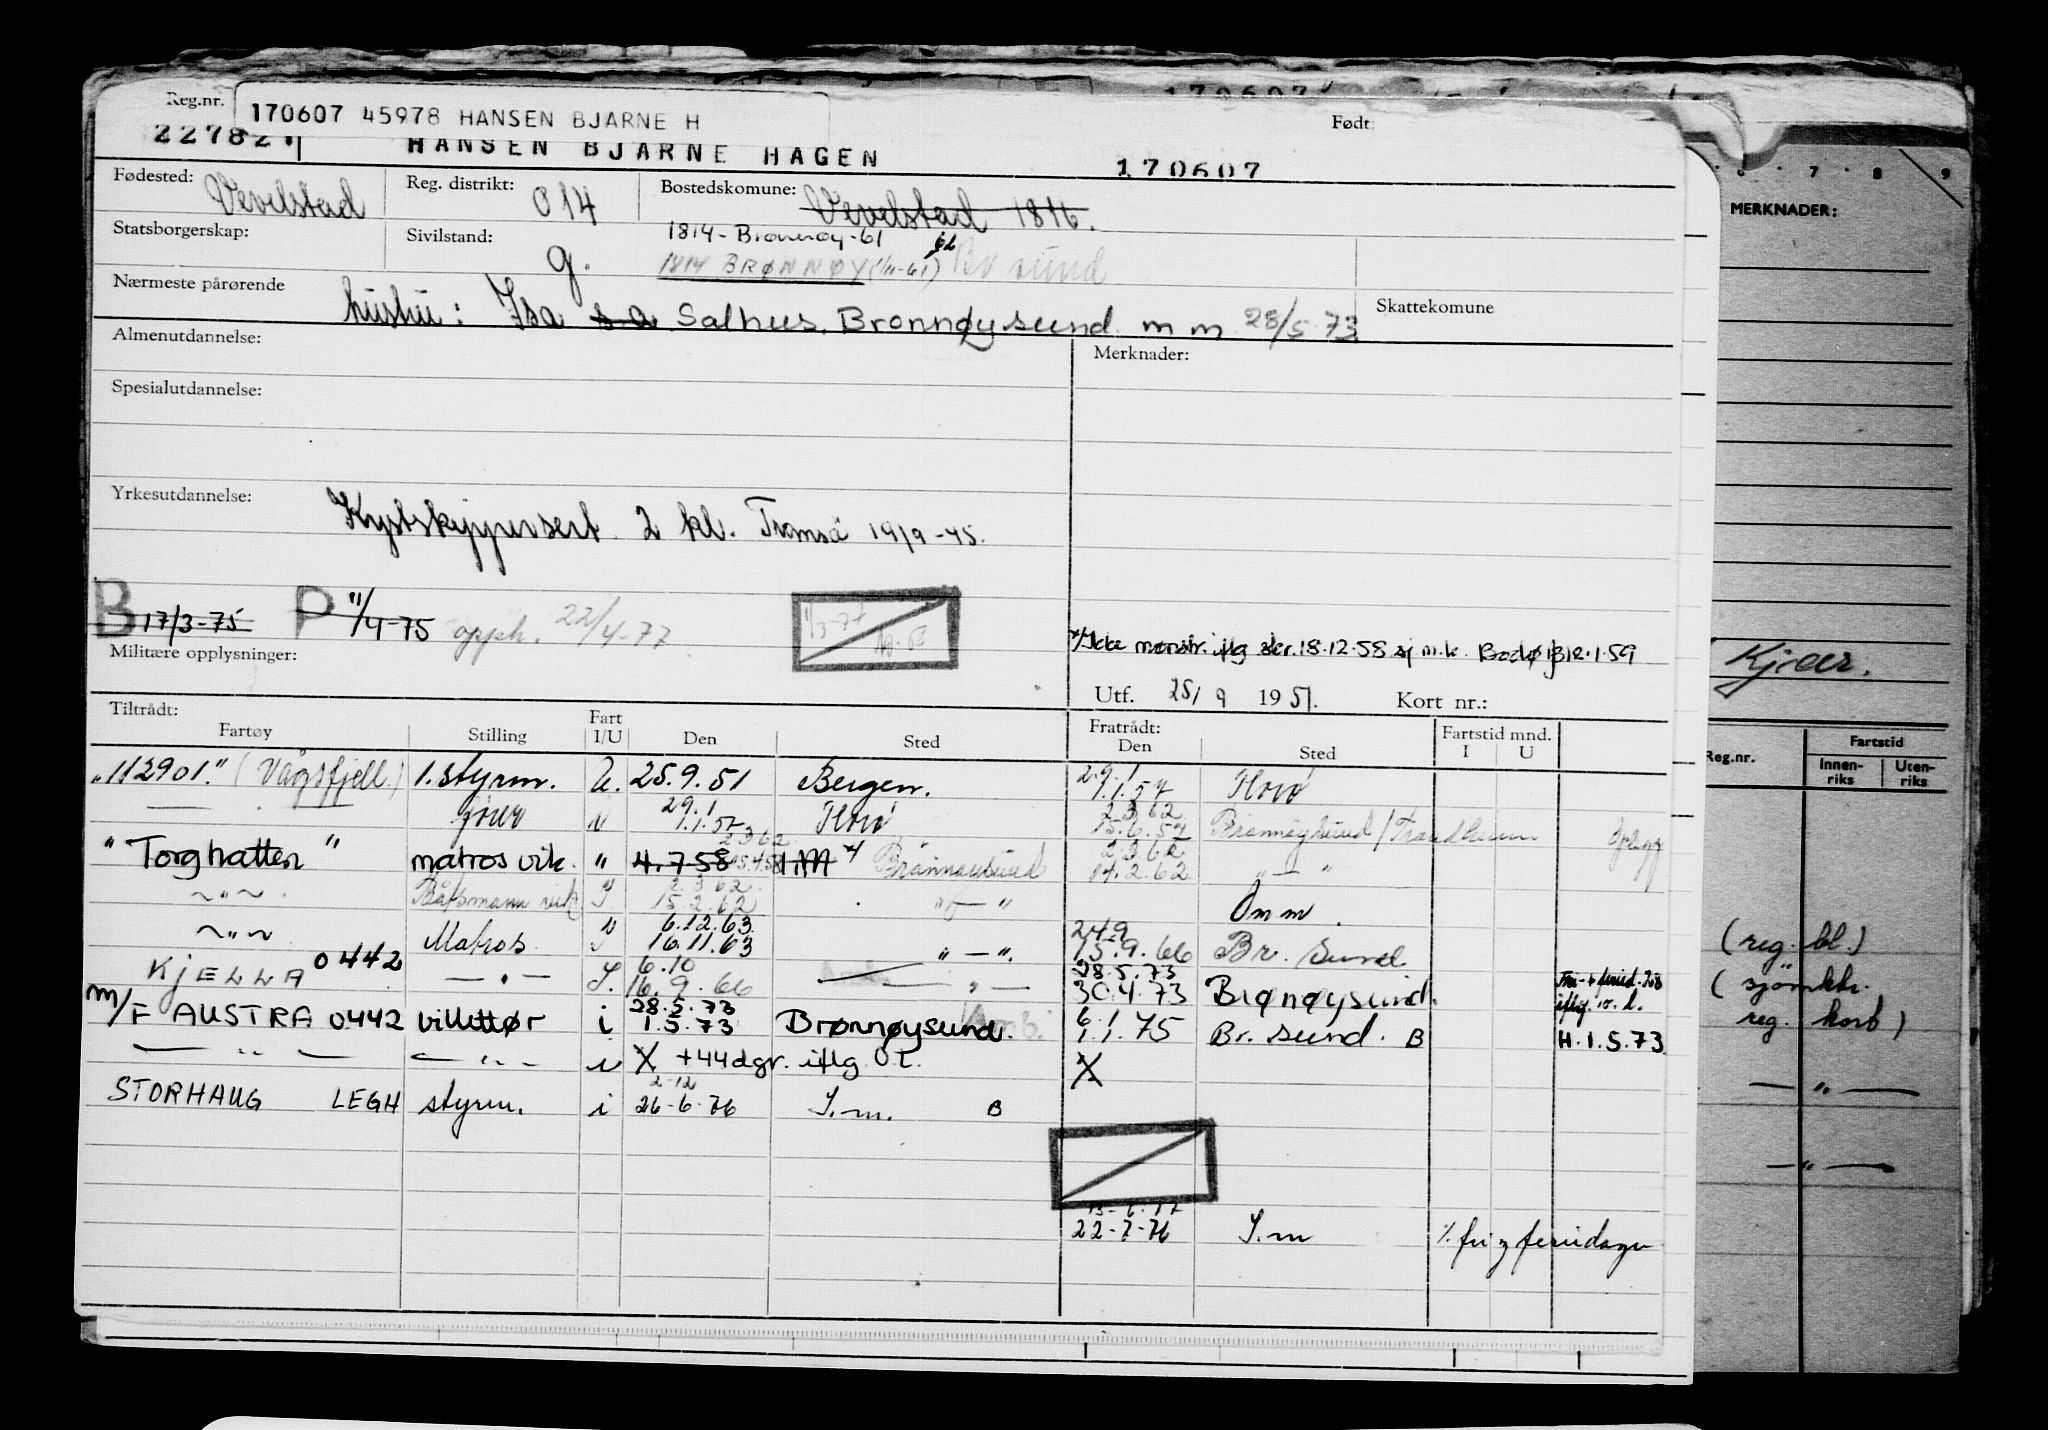 170607
Reg.nr. 170607 45978 HANSEN BJARNE H Født:
227821 HANSEN BJARNE HAGEN 170607
Fødested: Vevelstad Reg. distrikt: 014 Bostedskomune: Vevelstad 1816.
Statsborgerskap: Sivilstand: g. 1814 - Brønnøy - 61
1814 BRØNNØY (1/11-61) Br sund
Nærmeste pårørende hustru: Isa Salhus, Brønnøysund m m 28/5 73 Skattekomune
Almenutdannelse: Merknader:
Spesialutdannelse:
Yrkesutdannelse: Kystskippersert. 2 kl. Tromsø 19/9-45.
B 17/3-75 P 11/4-75 opph. 22/4-77 1/3-77
Militære opplysninger: x/Ikke mønstr. iflg skr. 18.12.58 sj m.k. Bodø 12.1.59
Utf. 25/9 1951. Kort nr.:
Tiltrådt: Fratrådt: Fartstid mnd.
Fartøy Stilling Fart I/U Den Sted Den Sted I U
"112901." (Vågsfjell) 1. styrm. U. 25.9.51 Bergen. 29.1 1.1.57 Florø
— " — 29.1 1.1.57 Florø 2362 15.6.57 Brønnøysund/Trondheim
"Torghatten" matros vik. " 4.7.58 2362 15.4.58 x Brønnøysund 2.3.62 14.2.62 " — "
~ " ~ Båtsmann vik I 2.3.62 15.2.62 " — " Om m.
~ " ~ Matros 6.12.63 16.11.63 " — ". 24.9 15.9.66 Br. sund
KJELLA 0442 — " — I. 6.10 16.9.66 — " — 28.5.73 30.4.73 Brønøysund.
M/F AUSTRA 0442 billettør i 28.5.73 1.5.73 Brønnøysund. 6.1 1.1.75 Br. sund. B H.1.5.73
— " — — " — i X +44 dgr. iflg. O.T. X
STORHAUG LEGH styrm. i 2-12 26-6-76 I.m. B
22-7-76 I.m % fri og feriedager
6 7 8 9
MERKNADER:
Kjær.
Reg.nr. Fartstid
Innenriks Utenriks
(reg. bl.)
(sjømktr.
reg. kort)
— " —
— " —